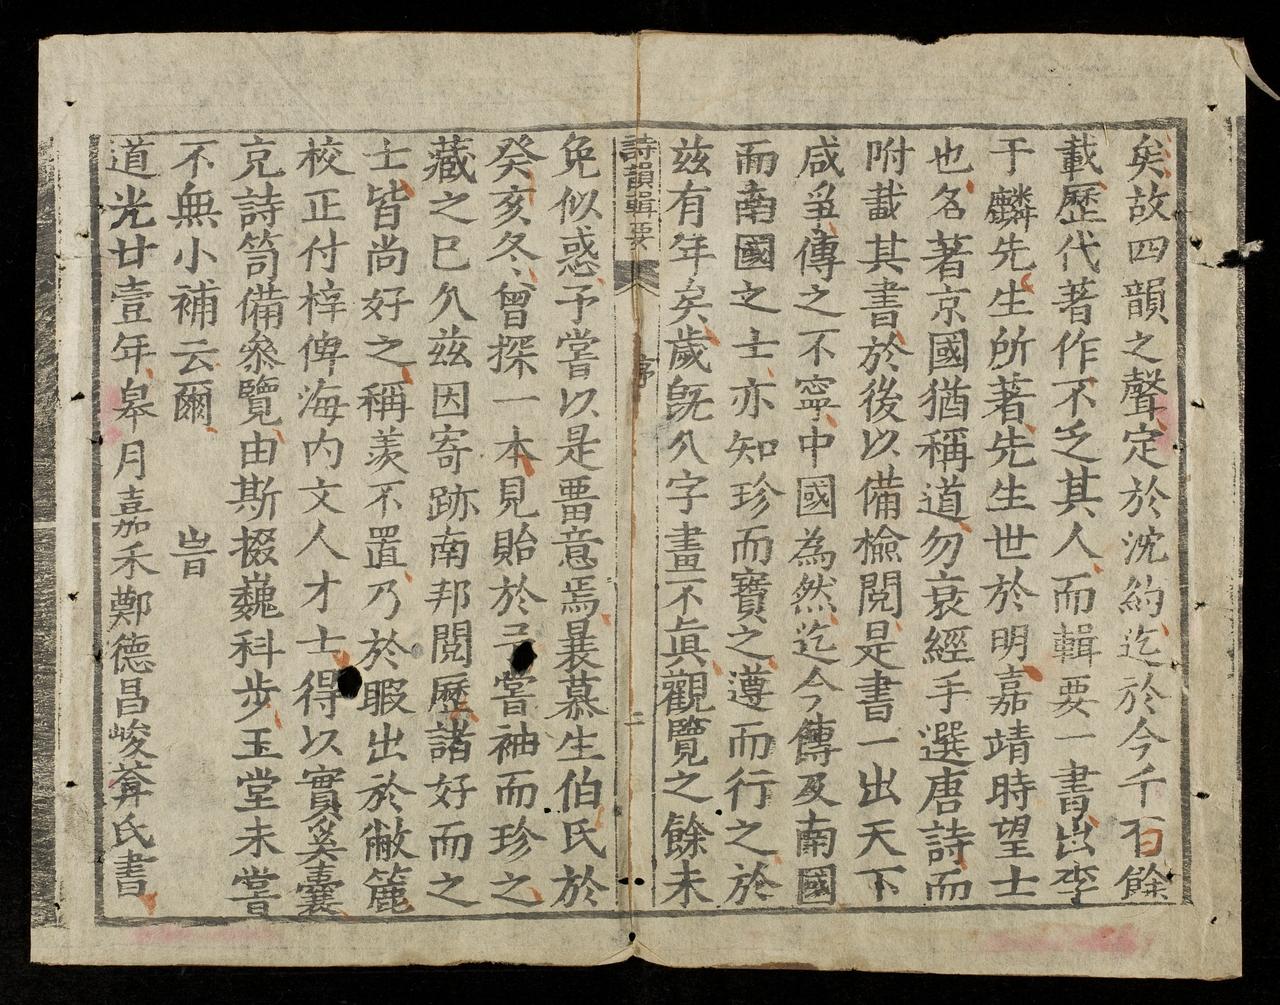 矣故四韻之聲定於沈約迄於今千百餘
載歷代著作不乏其人而輯要一書出李
于麟先生所著先生世於明嘉靖時望士
也名著京國猶稱道勿衰經手選唐詩而
附載其書於後以備檢閱是書一出天下
咸爭傳之不寧中國為然迄今傳及南國
而南國之士亦知珍而寶之遵而行之於
茲有年矣歲旣久字畫不眞觀覽之餘未
詩韻輯要 序 二
免似惑予嘗以是畱意焉曩慕生伯氏於
癸亥冬曾探一本見貽於予嘗袖而珍之
藏之已久茲因寄跡南邦閱歷諸好而之
士皆尚好之稱羨不置乃於暇出於敝簏
校正付梓俾海内文人才士得以實奚囊
克詩笥備叅覽由斯掇巍科步玉堂未嘗
不無小補云爾 旹
道光廿壹年皋月嘉禾鄭德昌峻葊氏書